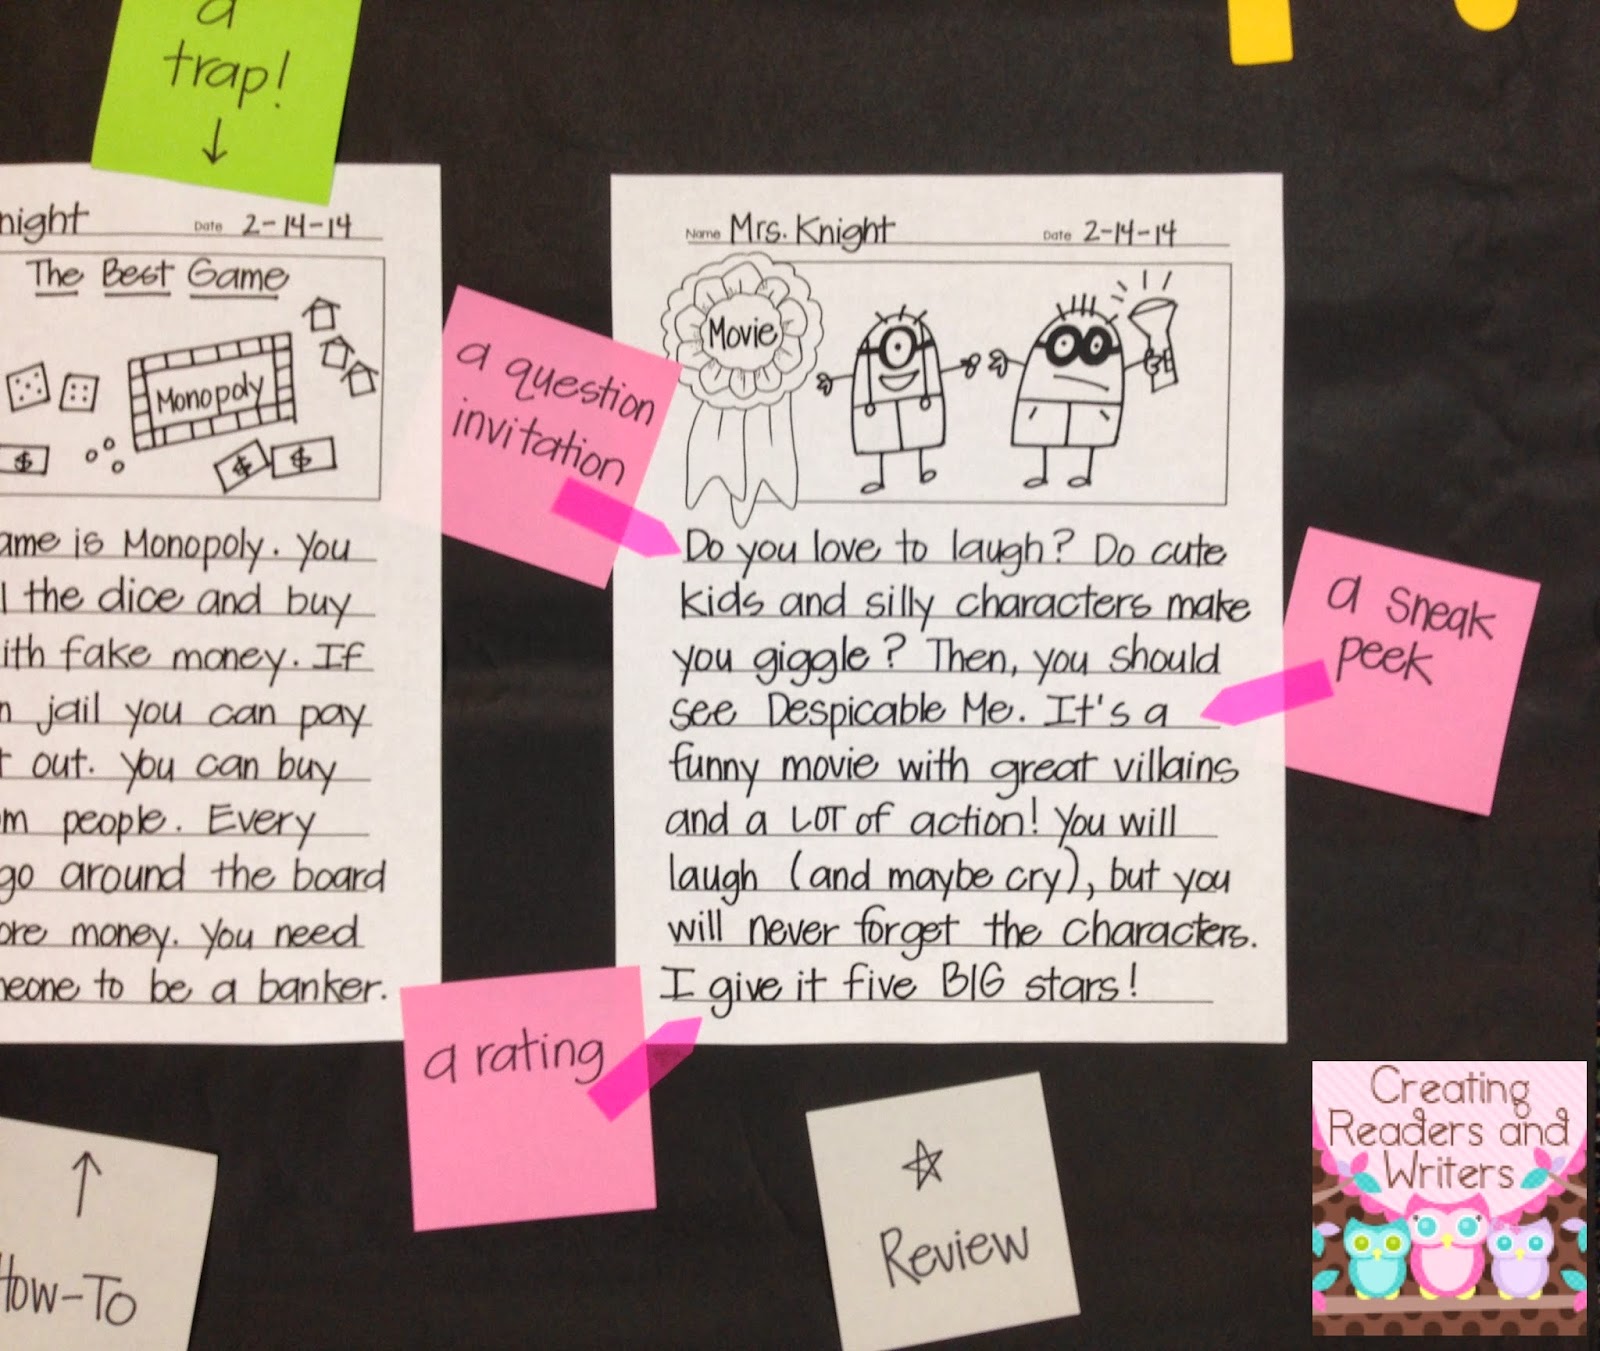 a
trap!
night Date 2-14-14
The Best Game
Monopoly
$
$ $
ame is Monopoly. You
the dice and buy
ith fake money. If
n jail you can pay
out. You can buy
m people. Every
go around the board
ore money. You need
meone to be a banker.
How-To
a question
invitation
Name Mrs. Knight Date 2-14-14
Movie
Do you love to laugh? Do cute
kids and silly characters make
you giggle? Then, you should
see Despicable Me. It's a
funny movie with great villains
and a LOT of action! You will
laugh (and maybe cry), but you
will never forget the characters.
I give it five BIG stars!
a sneak
peek
a rating
Review
Creating
Readers and
Writers